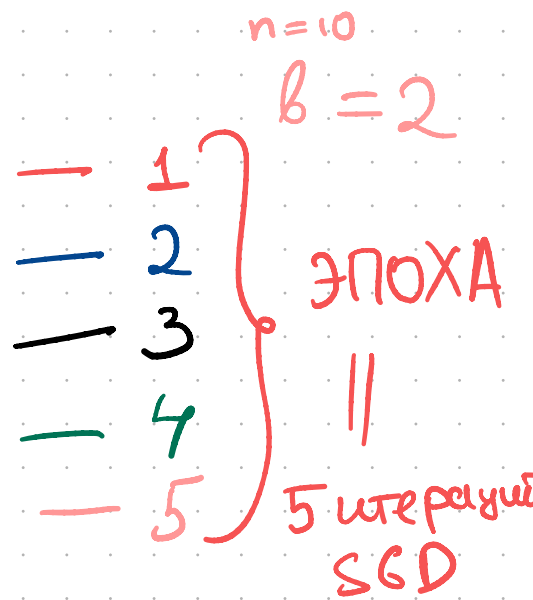 n=10
b=2
— 1
— 2
— 3
— 4
— 5
ЭПОХА
||
5 итераций
SGD